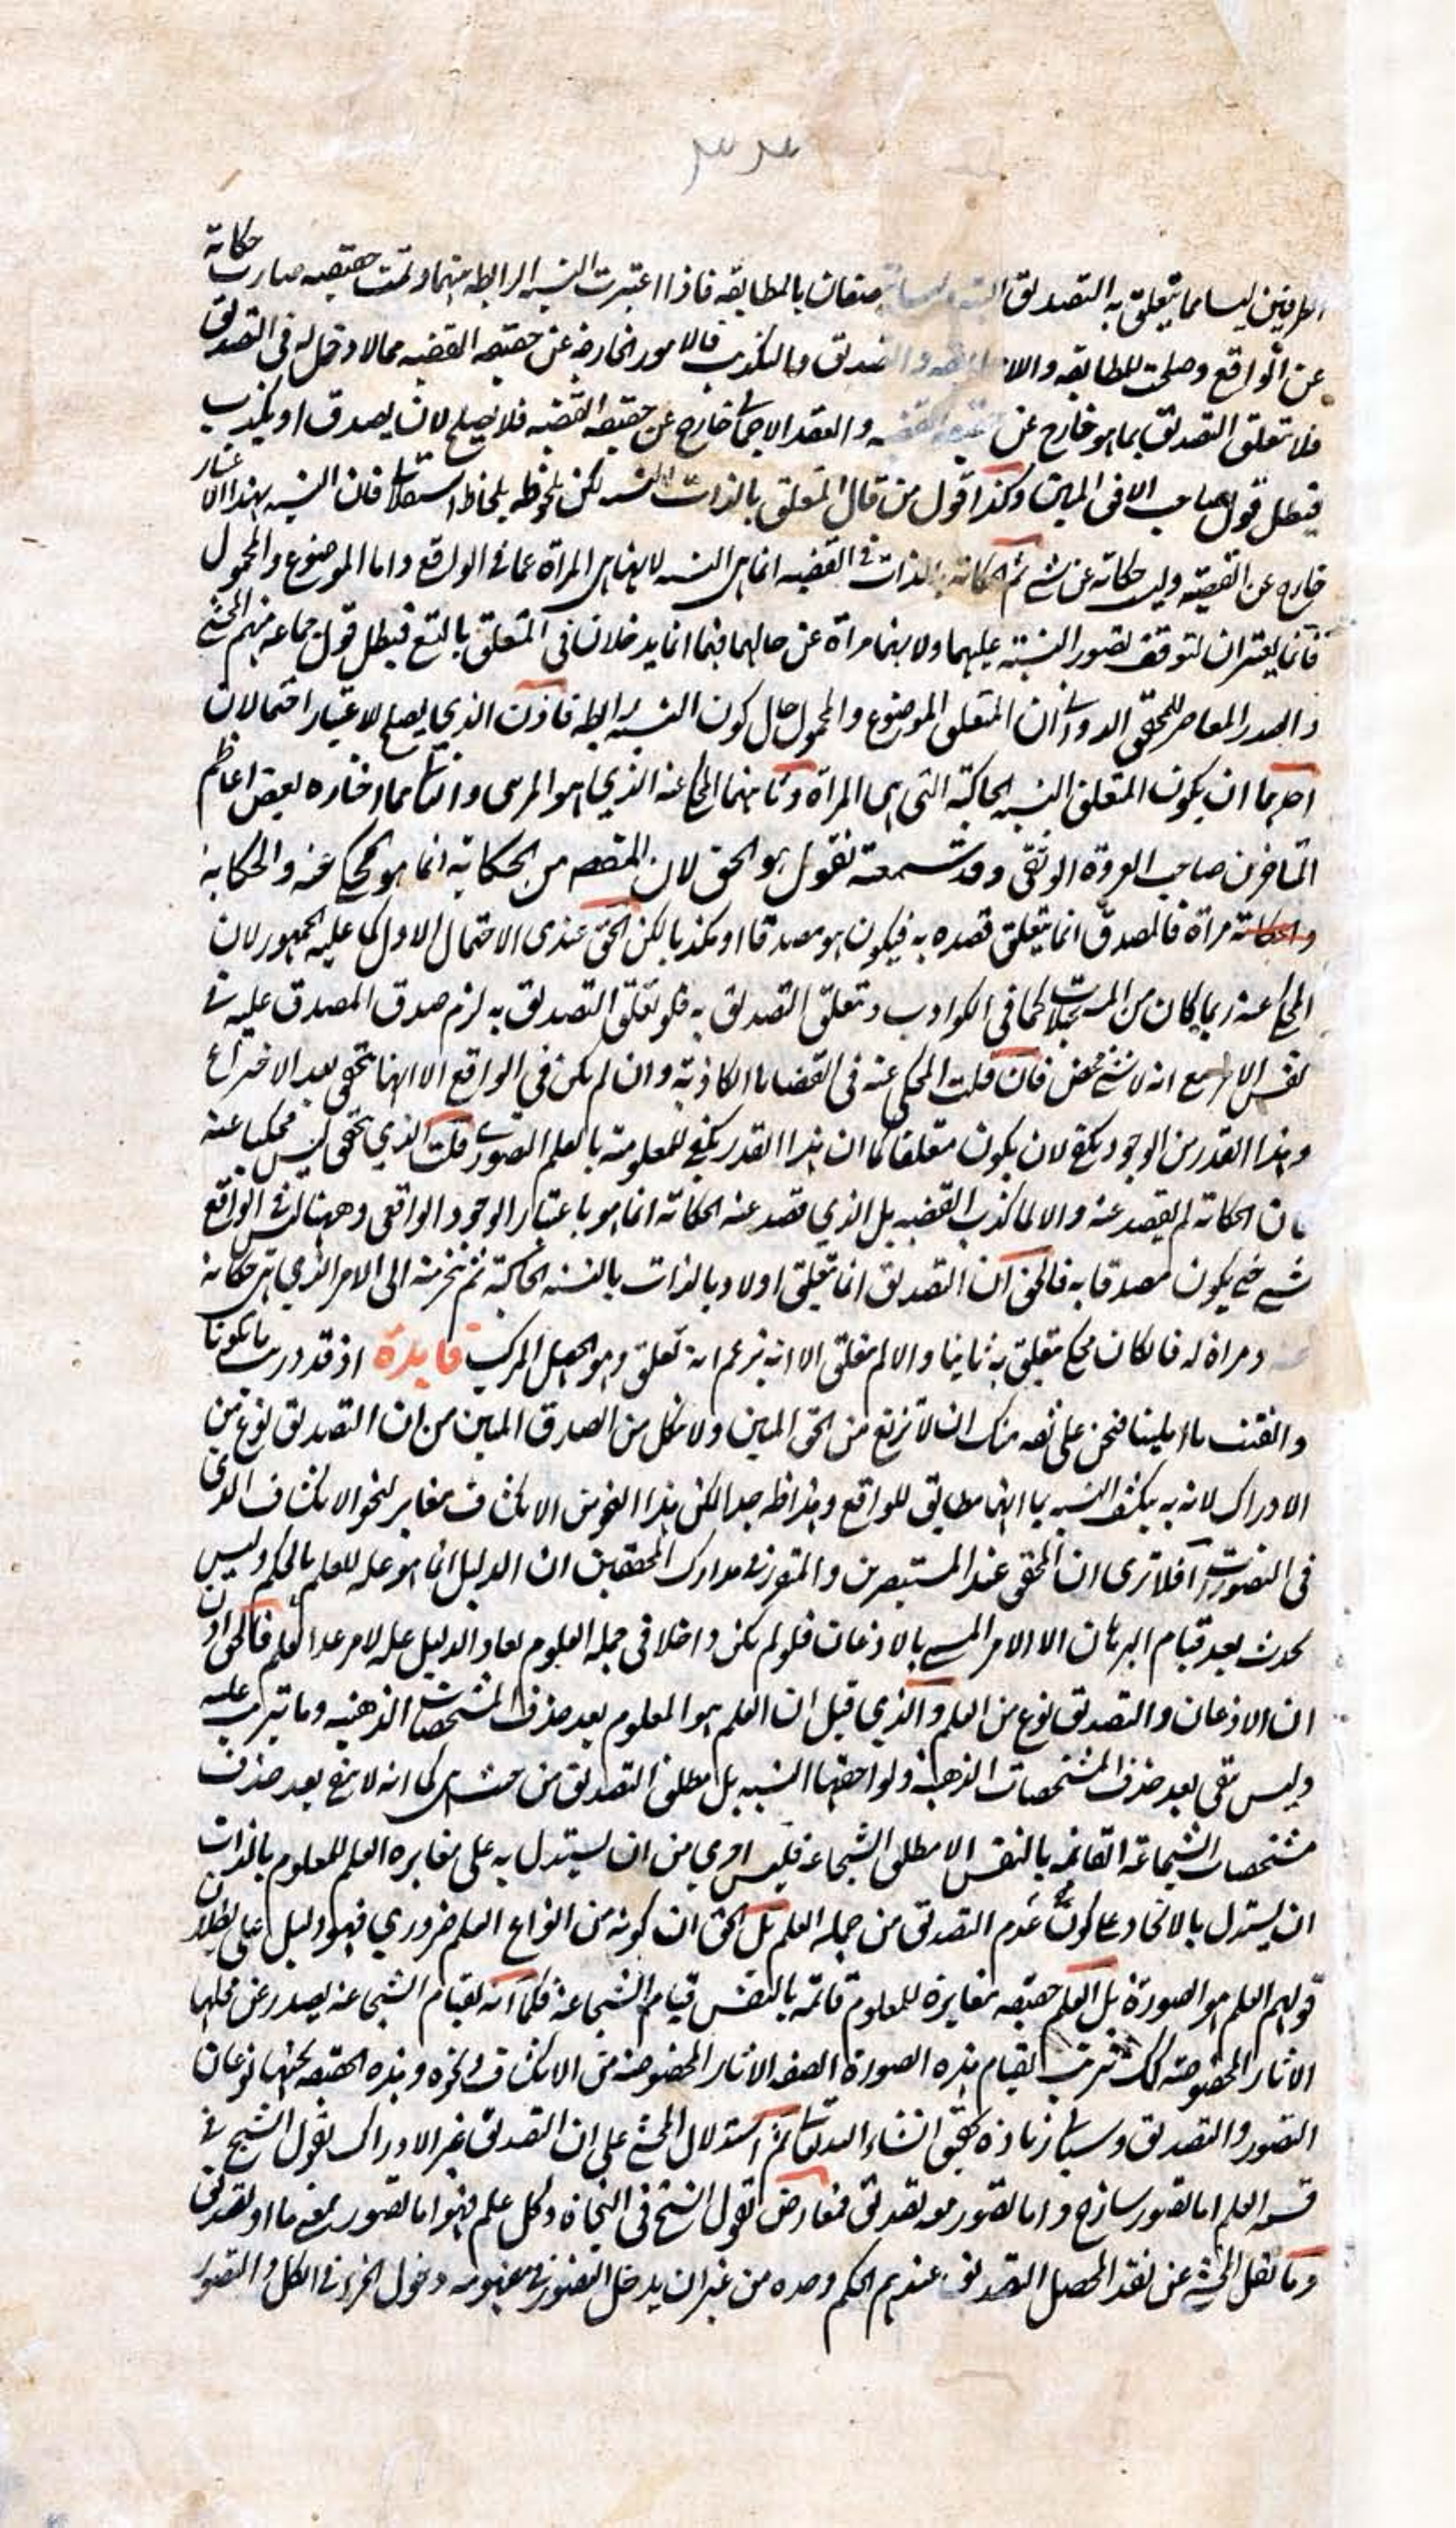 الطرفين ليسا مما يتعلق به التصديق متصفان بالمطابقه فاذا اعتبرت النسبه الرابطه بينهما وتمت حقيقيه صارت حكاية
عن الواقع وصلحت للمطابقه والا والتصديق والتكذيب فالامور الخارجه عن حقيقه القضيه مما لا دخل له فى التصديق
فلا يتعلق التصديق بما هو خارج عن حقيقه القضيه والعقد الاجمالى خارج عن حقيقه القضيه فلا يصلح لان يصدق او يكذب
فبطل قول صاحب الافق المبين وكذا قول من قال المتعلق بالذات النسبه لكن ملحوظه بلحاظ استقلالى فان النسبه بهذا الاعتبار
خارج عن القضيه وليس حكاية عن شئ ثم الحكاية بالذات فى القضيه انما هى النسبه لانها هى المرآة عما فى الواقع واما الموضوع والمحمول
فانما يعتبران لتوقف تصور النسبة عليهما ولانهما مرآة عن حالهما فهما انما يدخلان فى المتعلق بالتبع فبطل قول جماعه منهم المحشى
والصدر المعاصر للمحقق الدوانى ان المتعلق الموضوع والمحمول حال كون النسبه رابطه فاذن الذي يصلح لاعتبار احتمالان
احدهما ان يكون المتعلق النسبه الحاكية التى هى المرآة وثانيهما المحكى عنه الذي هو المرئى والثانى مما اختاره بعض اعاظم
المتاخرين صاحب العروة الوثقى وقد سمعته نقول هو الحق لان المقصد من الحكاية انما هو المحكى عنه والحكاية
والحكاية مرآة فالمصدق انما يتعلق قصده به فيكون هو مصدقا او مكذبا لكن الحق عندى الاحتمال الاول كما عليه الجمهور لان
المحكى عنه ربما كان من المستحيلات كما فى الكواذب ويتعلق التصديق به فلو تعلق التصديق به لزم صدق المصدق عليه فى
نفس الامر مع انه لا شئ محض فان قلت المحكى عنه فى القضايا الكاذبة وان لم يكن فى الواقع الا انها يتحقق بعد الاختراع
وهذا القدر من الوجود يكفى لان يكون متعلقا كما ان هذا القدر يكفى للمعلومية بالعلم التصورى قلت الذي يتحقق ليس محكيا عنه
فان الحكاية لم يقصد عنه والا لما كذب القضيه بل الذي قصد عنه الحكاية انما هو باعتبار الوجود الواقعى وههنا ليس فى الواقع
شئ حتى يكون مصدقا به فالحق ان التصديق انما يتعلق اولا وبالذات بالنسبه الحاكية ثم ينجر منه الى الامر الذي هى حكاية
عنه ومرآة له فان كان محكى يتعلق به ثانيا والا لم يتعلق الا انه يزعم انه تعلق وهو الجهل المركب فايدة اذ قد دريت ما تلونا
واتقنت ما املينا فنحن على ثقه منك ان لا تزيغ من الحق المبين ولا تكل من الصدق المبين من ان التصديق نوع من
الادراك لانه به ينكشف النسبه بانها مطابق للواقع وهذا ظاهر جدا لكن هذا النحو من الانكشاف مغاير لنحو الانكشاف الذى
فى التصورات افلا ترى ان المحقق عند المستبصرين والمتقرر فى مدارك المحققين ان الدليل انما هو عله للعلم بالحكم وليس
يحدث بعد قيام البرهان الا الامر المسمى بالاذعان فلو لم يكن داخلا فى جمله العلوم لعاد الدليل عله لامر عدا العلم فالحق اذن
ان الاذعان والتصديق نوع من العلم والذي قيل ان العلم هو المعلوم بعد حذف المشخصات الذهنيه وما يترتب عليه
وليس يبقى بعد حذف المشخصات الذهنية ولواحقها النسبه بل مطلق التصديق من حيث هى كما انه لا يبقى بعد حذف
مشخصات الشجاعة القائمه بالنفس الا مطلق الشجاعه فليس احرى من ان يستدل به على مغايره العلم للمعلوم بالذات
ان يستدل بالاتحاد على كون عدم التصديق من جمله العلم بل الحق ان كونه من انواع العلم ضروري فهو دليل على بطلان
قولهم العلم هو الصورة بل العلم حقيقه مغايرة للمعلوم قائمة بالنفس قيام الشجاعه فكما انه لقيام الشجاعه يصدر عن محلها
الاثار المخصوصة كذلك يترتب لقيام هذه الصورة الصفه الاثار المخصوصه من الانكشاف ونحوه وهذه الحقيقه تحتها نوعان
التصور والتصديق وسياتى زيادة تحقيق انشاء الله تعالى ثم استدلال المحشى على ان التصديق غير الادراك بقول الشيخ فى
قسمه العلم اما تصور ساذج واما تصور معه تصديق فمعارض بقول الشيخ فى النجاة وكل علم فهو اما تصور بمعنى ما او تصديق
وما نقل المحشى عن نقد المحصل التصديق عندهم الحكم وحده من غير ان يدخل التصور فى مفهومه دخول الجزء فى الكل والتصور